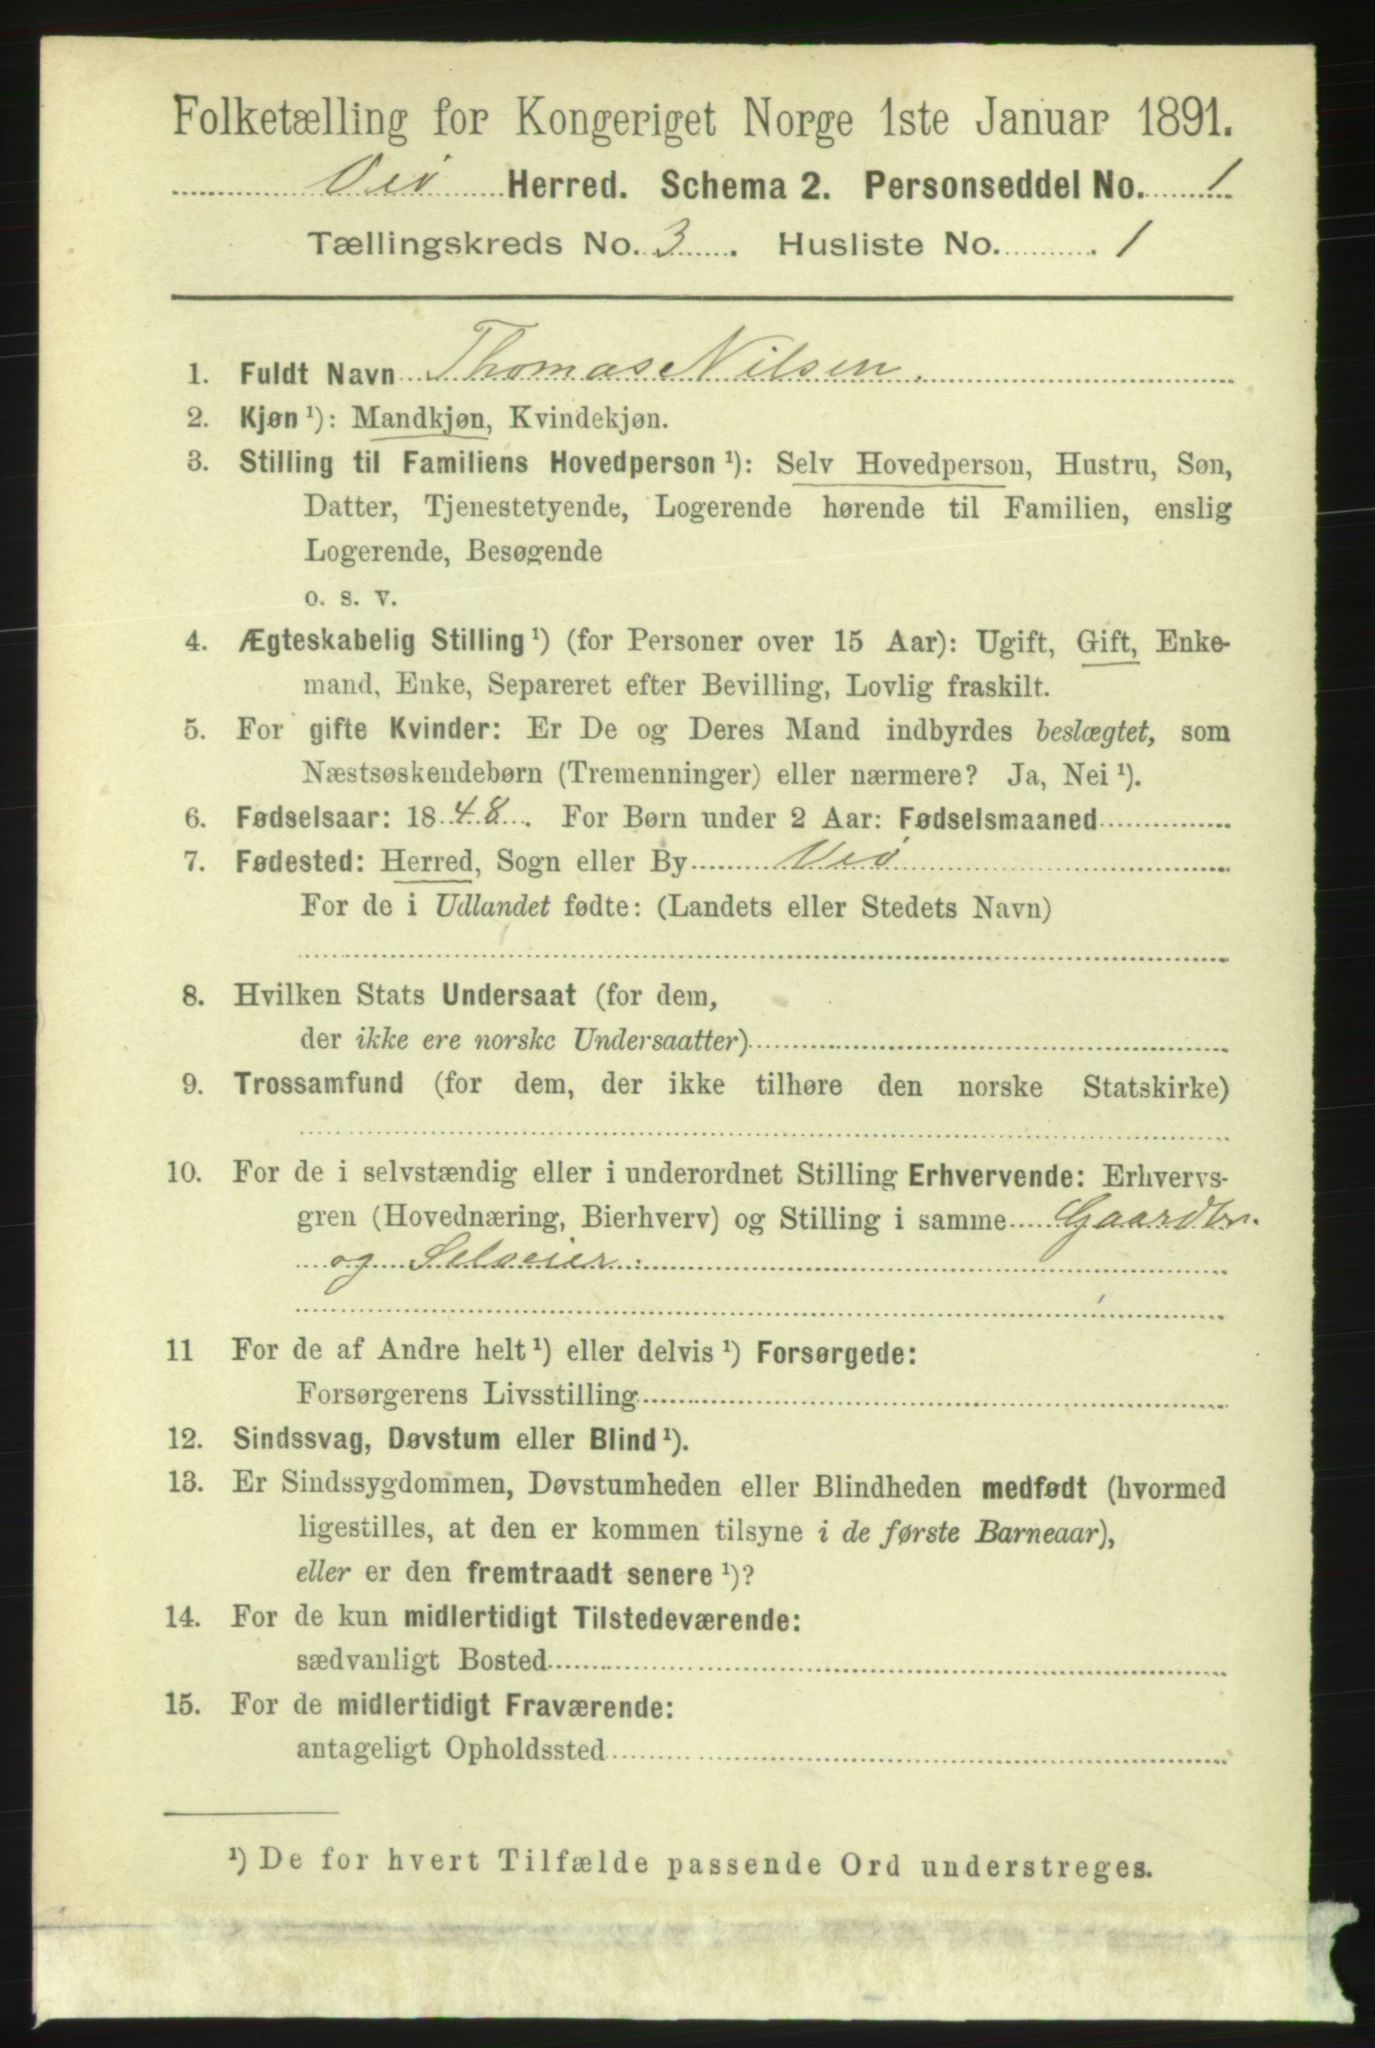 Folketælling for Kongeriget Norge 1ste Januar 1891.
Veø Herred. Schema 2. Personseddel No. 1
Tællingskreds No. 3. Husliste No. 1
1. Fuldt Navn Thomas Nilsen.
2. Kjøn ¹): Mandkjøn, Kvindekjøn.
3. Stilling til Familiens Hovedperson ¹): Selv Hovedperson, Hustru, Søn,
Datter, Tjenestetyende, Logerende hørende til Familien, enslig
Logerende, Besøgende
o. s. v.
4. Ægteskabelig Stilling ¹) (for Personer over 15 Aar): Ugift, Gift, Enke-
mand, Enke, Separeret efter Bevilling, Lovlig fraskilt.
5. For gifte Kvinder: Er De og Deres Mand indbyrdes beslægtet, som
Næstsøskendebørn (Tremenninger) eller nærmere? Ja, Nei ¹).
6. Fødselsaar: 1848. For Børn under 2 Aar: Fødselsmaaned
7. Fødested: Herred, Sogn eller By Veø
For de i Udlandet fødte: (Landets eller Stedets Navn)
8. Hvilken Stats Undersaat (for dem,
der ikke ere norske Undersaatter)
9. Trossamfund (for dem, der ikke tilhøre den norske Statskirke)
10. For de i selvstændig eller i underordnet Stilling Erhvervende: Erhvervs-
gren (Hovednæring, Bierhverv) og Stilling i samme Gaardbr.
og Selveier.
11 For de af Andre helt ¹) eller delvis ¹) Forsørgede:
Forsørgerens Livsstilling
12. Sindssvag, Døvstum eller Blind ¹).
13. Er Sindssygdommen, Døvstumheden eller Blindheden medfødt (hvormed
ligestilles, at den er kommen tilsyne i de første Barneaar),
eller er den fremtraadt senere ¹)?
14. For de kun midlertidigt Tilstedeværende:
sædvanligt Bosted
15. For de midlertidigt Fraværende:
antageligt Opholdssted
¹) De for hvert Tilfælde passende Ord understreges.